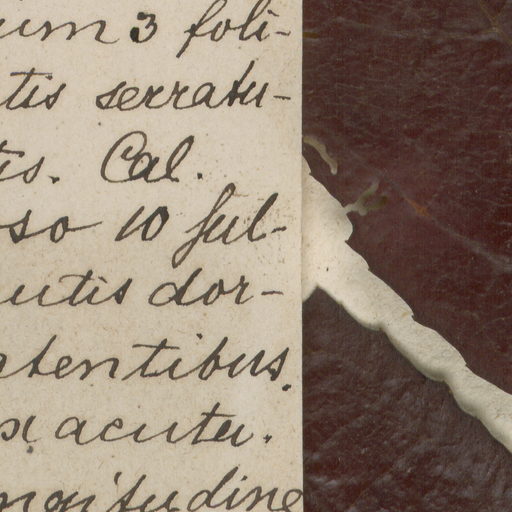 um 3 foli-
tis serratu-
tis. Cal.
so 10 ful-
utis dor-
atentibus.
x acuta.
ongitudine